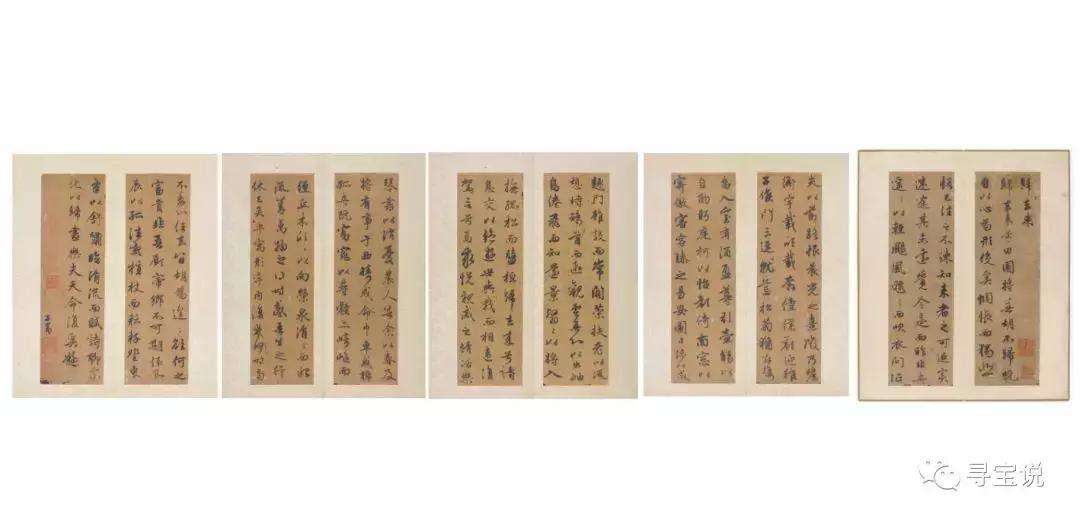 歸去來
歸去來兮田園將蕪胡不歸既
自以心為形役奚惆悵而獨悲
悟已往之不諫知來者之可追實
迷途其未遠覺今是而昨非舟
遙〻以輕颺風飄〻而吹衣問征
夫以前路恨晨光之熹微乃瞻
衡宇載欣載奔僮僕歡迎稚
子候門三逕就荒松菊猶存攜
幼入室有酒盈樽引壺觴以
自酌眄庭柯以怡顏倚南窗以
寄傲審容膝之易安園日涉以成
趣門雖設而常關策扶老以流
憩時矯首而遐觀雲無心以出岫
鳥倦飛而知還景翳〻以將入
撫孤松而盤桓歸去來兮請
息交以絕遊世與我而相遺復
駕言兮焉求悅親戚之情話樂
琴書以消憂農人告余以春及
將有事于西疇或命巾車或棹
孤舟既窈窕以尋壑亦崎嶇而
經丘木欣〻以向榮泉涓〻而始
流善萬物之得時感吾生之行
休已矣乎寓形宇內復幾時曷
不委心任去留胡為遑〻欲何之
富貴非吾願帝鄉不可期懷良
辰以孤往或植杖而耘耔登東
皋以舒嘯臨清流而賦詩聊乘
化以歸盡樂夫天命復奚疑
子昂
寻宝说